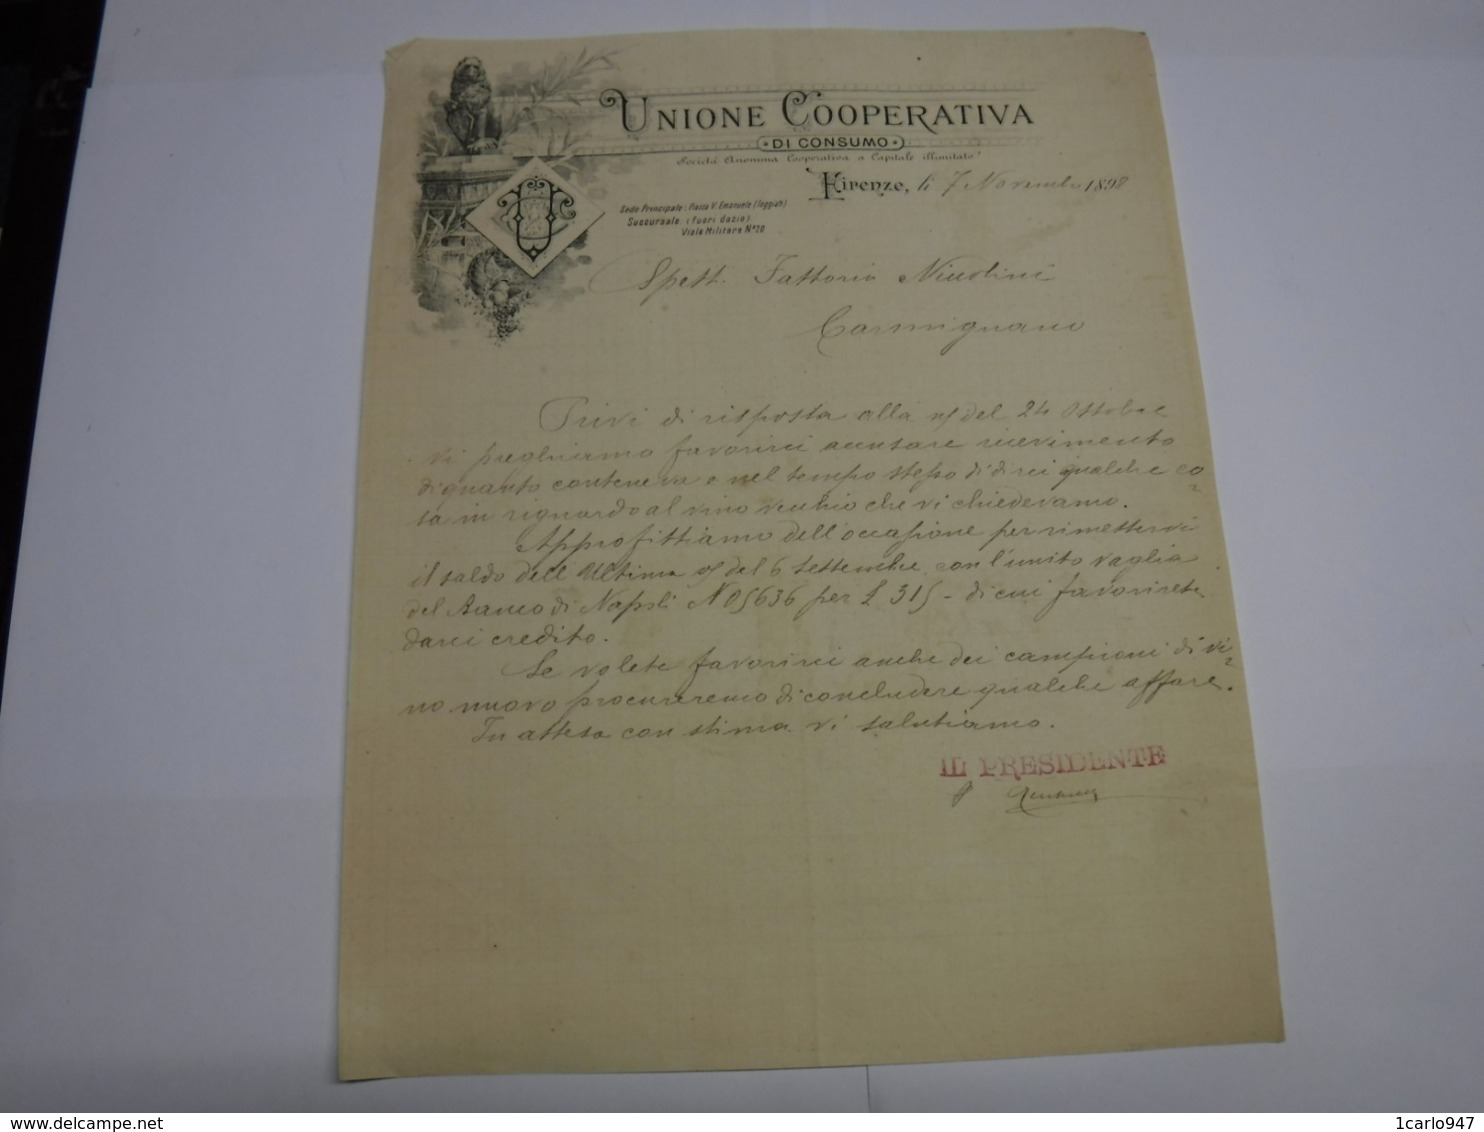 UNIONE COOPERATIVA
DI CONSUMO
Società Anonima Cooperativa a Capitale illimitato
Firenze, li 7 Novembre 1898
Sede Principale: Piazza V. Emanuele (loggiato)
Succursale (fuori dazio)
Viale Militare N°20
Spett. Fattoria Niccolini
Carmignano
Privi di risposta alla del 24 Ottobre
vi preghiamo favorirci accusare ricevimento
di quanto conteneva e nel tempo stesso di dirci qualche co=
sa in riguardo al vino vecchio che vi chiedevamo.
Approfittiamo dell'occasione per rimettervi
il saldo dell'Ultima del 6 Settembre con l'unito vaglia
del Banco di Napoli N 05636 per £ 315 - di cui favorirete
darci credito.
Se volete favorirci anche dei campioni di vi=
no nuovo procureremo di concludere qualche affare.
In attesa con stima vi salutiamo.
IL PRESIDENTE
P
delcampe.net
1carlo947